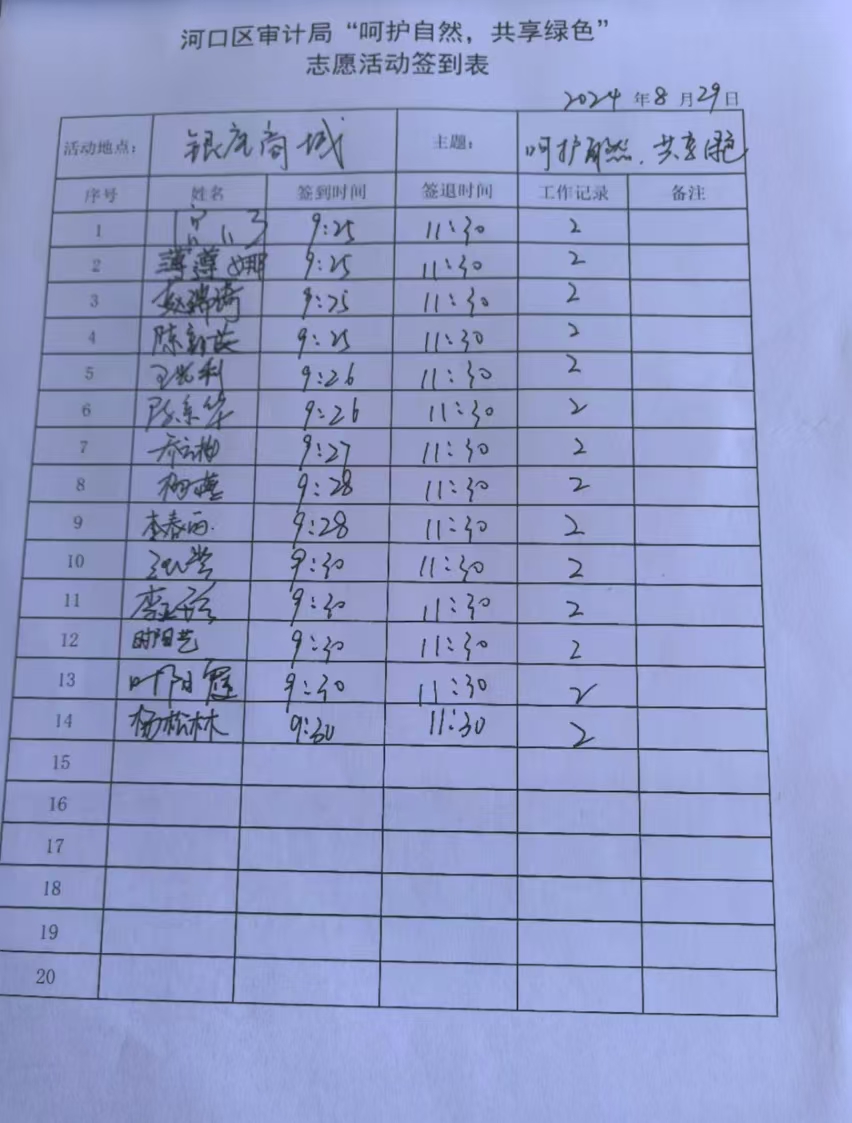 河口区审计局“呵护自然，共享绿色”
志愿活动签到表
2024 年 8 月 29 日
活动地点： 银座商城 主题： 呵护自然，共享绿色
序号 姓名 签到时间 签退时间 工作记录 备注
1 9:25 11:30 2
2 薄遵娜 9:25 11:30 2
3 赵瑞琦 9:25 11:30 2
4 陈 9:25 11:30 2
5 王 利 9:26 11:30 2
6 陈东华 9:26 11:30 2
7 9:27 11:30 2
8 9:28 11:30 2
9 李春雨 9:28 11:30 2
10 9:30 11:30 2
11 9:30 11:30 2
12 时阳艺 9:30 11:30 2
13 叶阳霞 9:30 11:30 2
14 杨松林 9:30 11:30 2
15
16
17
18
19
20